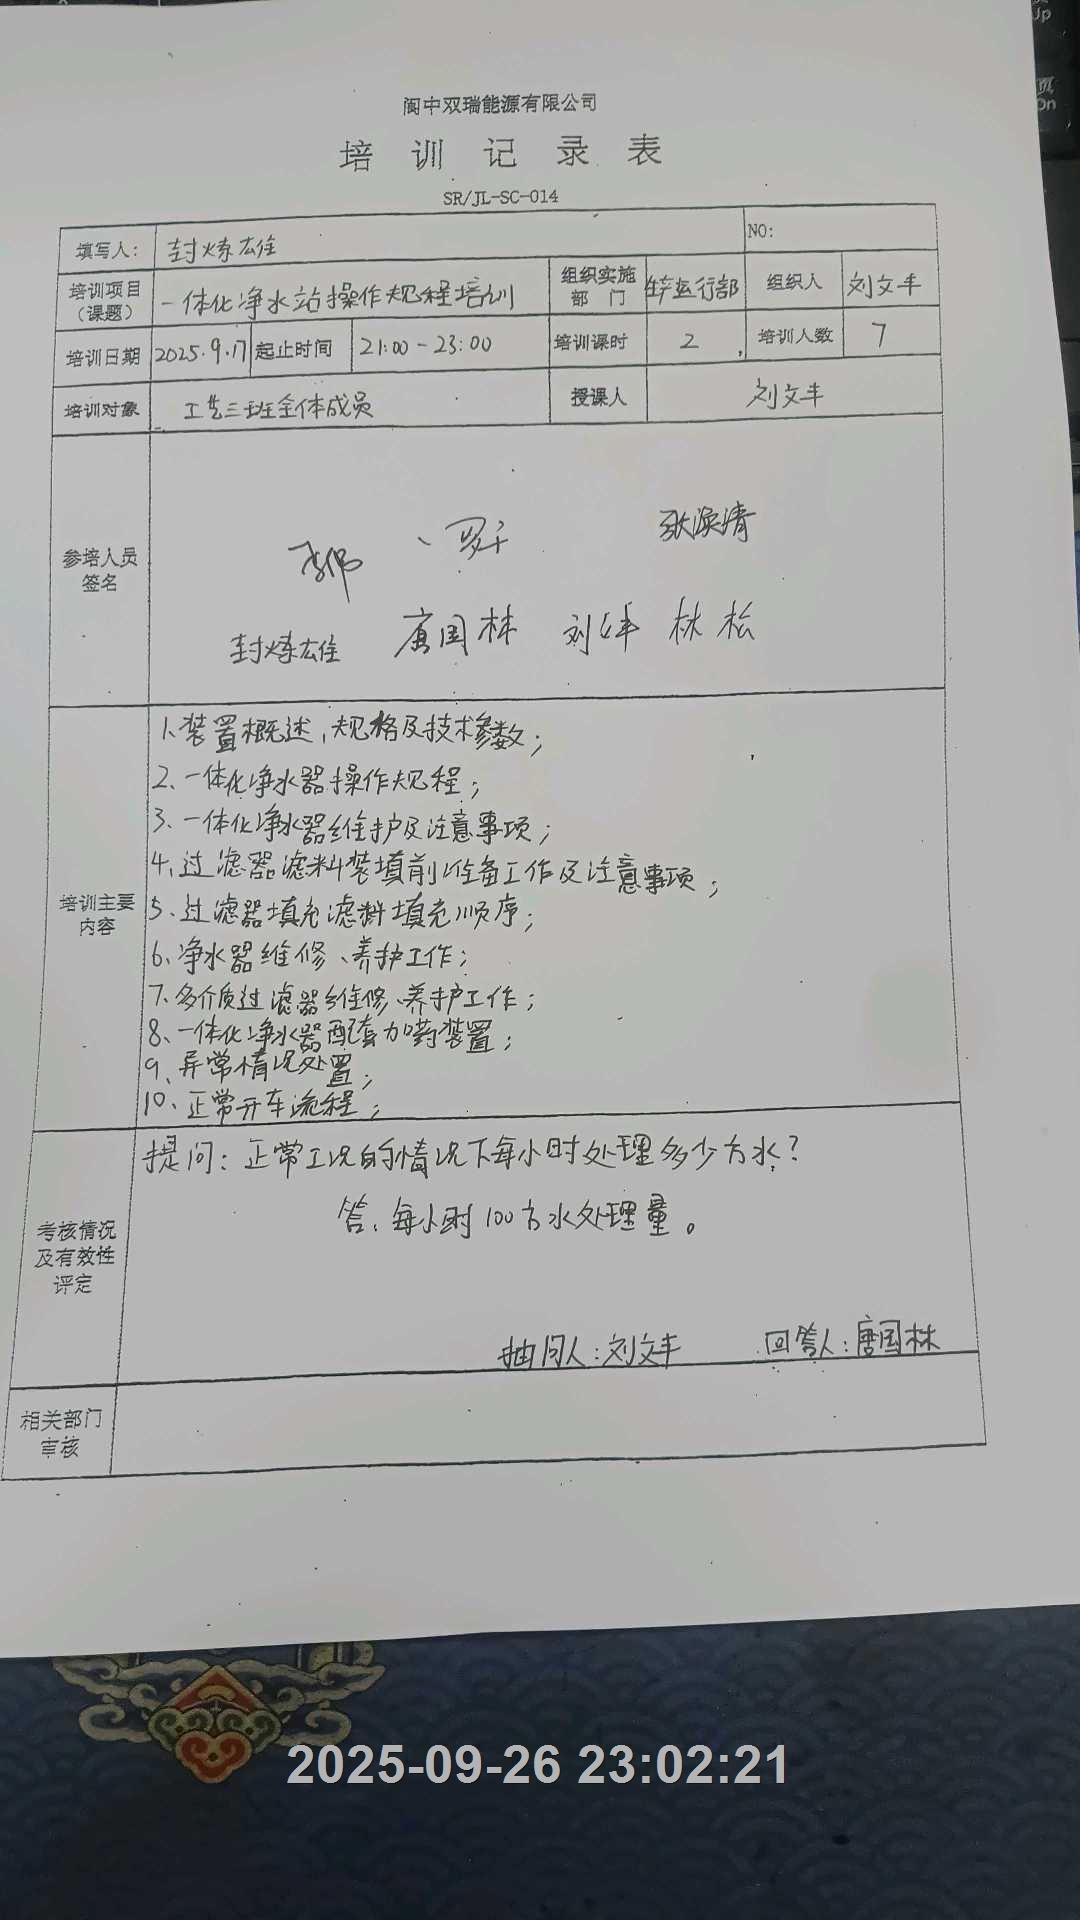 阆中双瑞能源有限公司
培训记录表
SR/JL-SC-014
填写人： 封炼雄 NO:
培训项目（课题） 一体化净水站操作规程培训 组织实施部门 生产运行部 组织人 刘文丰
培训日期 2025.9.17 起止时间 21:00-23:00 培训课时 2 培训人数 7
培训对象 工艺三班全体成员 授课人 刘文丰
参培人员签名
封炼雄 唐国林 刘文丰 林松
培训主要内容
1、装置概述，规格及技术参数；
2、一体化净水器操作规程；
3、一体化净水器维护及注意事项；
4、过滤器滤料装填前准备工作及注意事项；
5、过滤器填充滤料填充顺序；
6、净水器维修、养护工作；
7、多介质过滤器维修、养护工作；
8、一体化净水器配套加药装置；
9、异常情况处置；
10、正常开车流程；
考核情况及有效性评定
提问：正常工况的情况下每小时处理多少方水？
答、每小时100方水处理量。
抽问人：刘文丰 回答人：唐国林
相关部门审核
2025-09-26 23:02:21